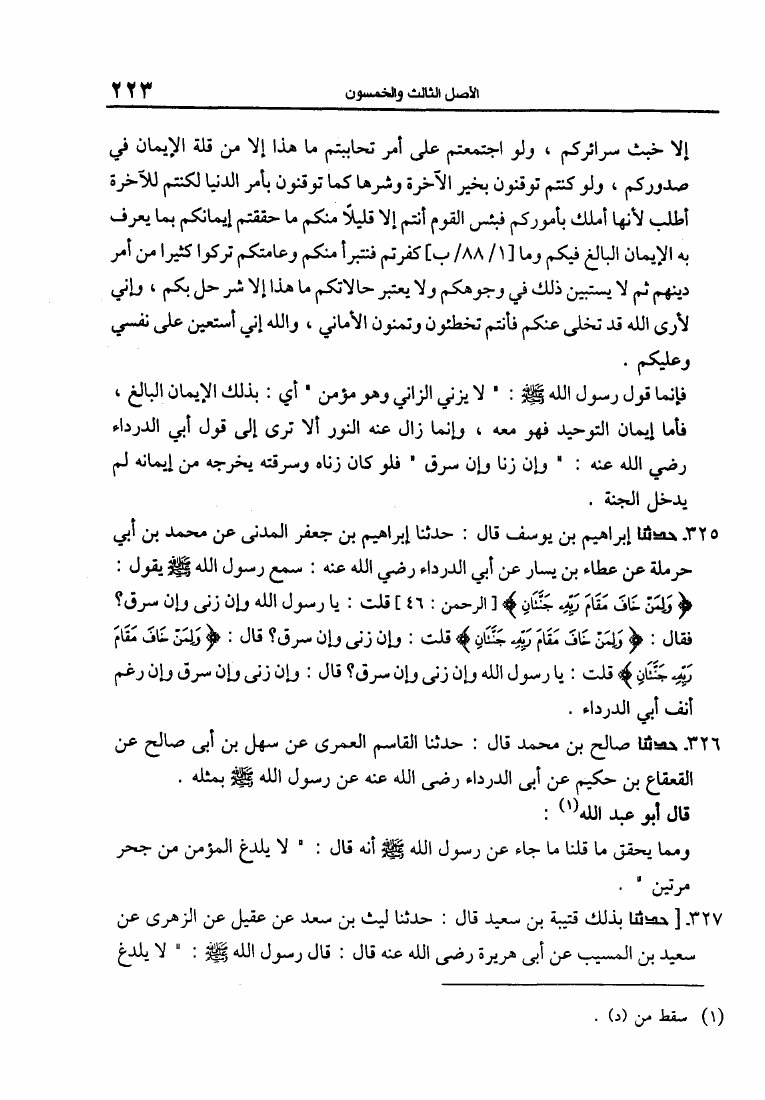 الأصل الثالث والخمسون ٢٢٣
إلا خبث سرائركم ، ولو اجتمعتم على أمر تحاببتم ما هذا إلا من قلة الإيمان في
صدوركم ، ولو كنتم توقنون بخير الآخرة وشرها كما توقنون بأمر الدنيا لكنتم للآخرة
أطلب لأنها أملك بأموركم فبئس القوم أنتم إلا قليلاً منكم ما حققتم إيمانكم بما يعرف
به الإيمان البالغ فيكم وما [١/ ٨٨/ ب] كفرتم فنتبرأ منكم وعامتكم تركوا كثيرا من أمر
دينهم ثم لا يستبين ذلك في وجوهكم ولا يعتبر حالاتكم ما هذا إلا شر حل بكم ، وإني
لأرى الله قد تخلى عنكم فأنتم تخطئون وتمنون الأماني ، والله إني أستعين على نفسي
وعليكم .
فإنما قول رسول الله ﷺ : " لا يزني الزاني وهو مؤمن " أي : بذلك الإيمان البالغ ،
فأما إيمان التوحيد فهو معه ، وإنما زال عنه النور ألا ترى إلى قول أبي الدرداء
رضي الله عنه : " وإن زنا وإن سرق " فلو كان زناه وسرقته يخرجه من إيمانه لم
يدخل الجنة .
٣٢٥. حدثنا إبراهيم بن يوسف قال : حدثنا إبراهيم بن جعفر المدنى عن محمد بن أبي
حرملة عن عطاء بن يسار عن أبي الدرداء رضي الله عنه : سمع رسول الله ﷺ يقول :
﴿ وَلِمَنْ خَافَ مَقَامَ رَبِّهِ جَنَّتَانِ ﴾ [ الرحمن : ٤٦ ] قلت : يا رسول الله وإن زنى وإن سرق؟
فقال : ﴿ وَلِمَنْ خَافَ مَقَامَ رَبِّهِ جَنَّتَانِ ﴾ قلت : وإن زنى وإن سرق؟ قال : ﴿ وَلِمَنْ خَافَ مَقَامَ
رَبِّهِ جَنَّتَانِ ﴾ قلت : يا رسول الله وإن زنى وإن سرق؟ قال : وإن زنى وإن سرق وإن رغم
أنف أبي الدرداء .
٣٢٦. حدثنا صالح بن محمد قال : حدثنا القاسم العمرى عن سهل بن أبى صالح عن
القعقاع بن حكيم عن أبى الدرداء رضى الله عنه عن رسول الله ﷺ بمثله .
قال أبو عبد الله(١) :
ومما يحقق ما قلنا ما جاء عن رسول الله ﷺ أنه قال : " لا يلدغ المؤمن من جحر
مرتين " .
٣٢٧. [ حدثنا بذلك قتيبة بن سعيد قال : حدثنا ليث بن سعد عن عقيل عن الزهرى عن
سعيد بن المسيب عن أبى هريرة رضى الله عنه قال : قال رسول الله ﷺ : " لا يلدغ
(١) سقط من (د) .